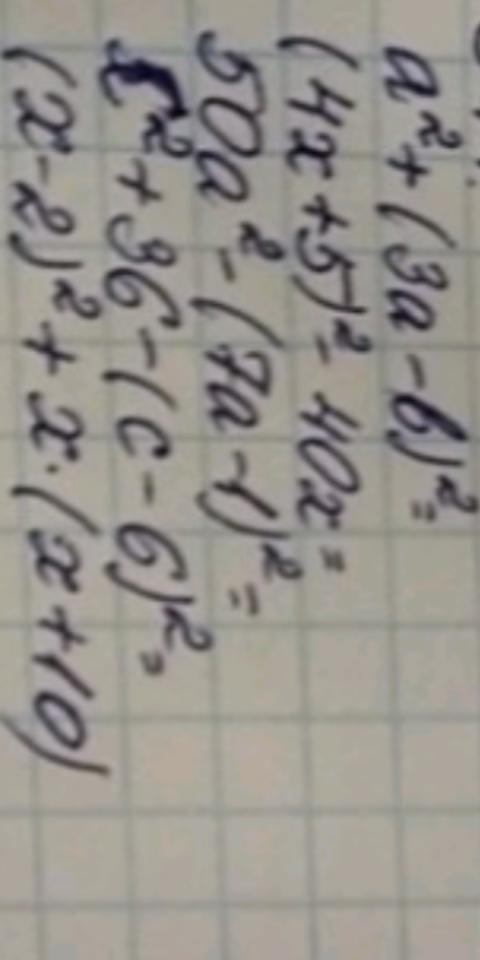 a² + (3a - b)² =
(4x + 5)² - 40x =
50a² - (7a - 1)² =
c² + 36 - (c - 6)² =
(x - 2)² + x · (x + 10)